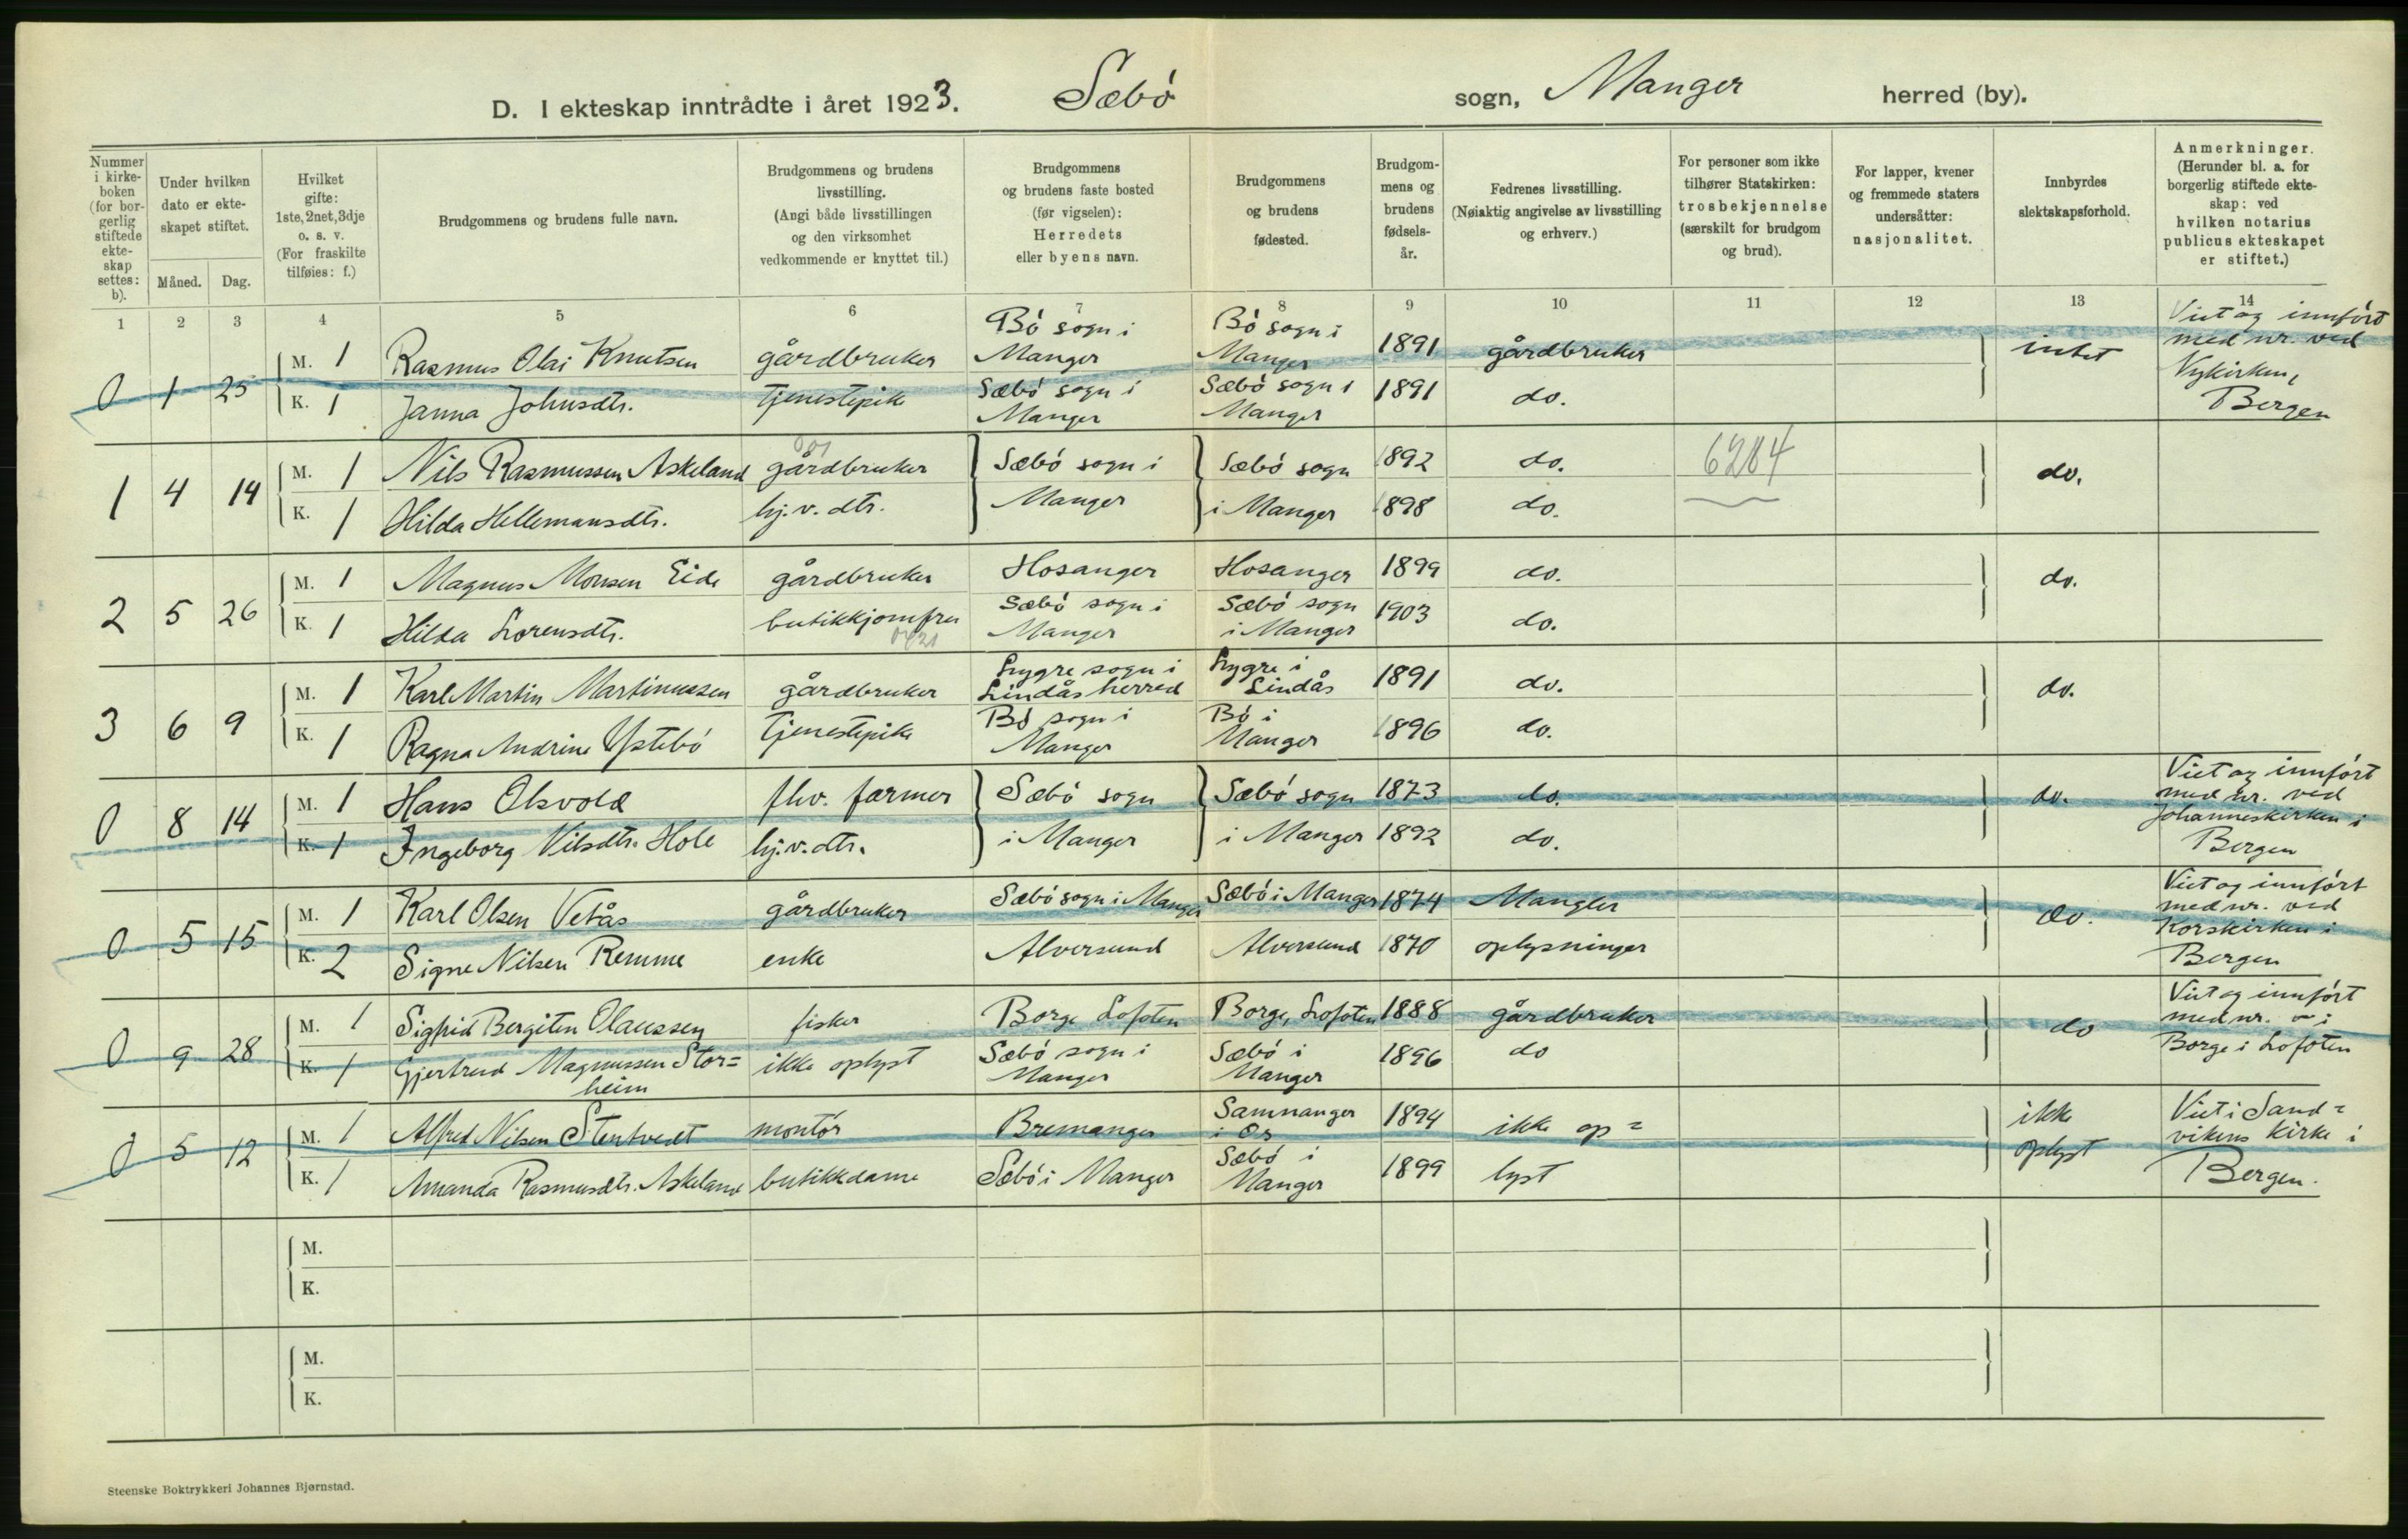 D. I ekteskap inntrådte i året 1923. Sæbö sogn, Manger herred (by).
Nummer i kirkeboken (for borgerlig stiftede ekteskap settes: b).
Under hvilken dato er ekteskapet stiftet.
Måned. Dag.
Hvilket gifte: 1ste, 2net, 3dje o. s. v. (For fraskilte tilføies: f.)
Brudgommens og brudens fulle navn.
Brudgommens og brudens livsstilling. (Angi både livsstillingen og den virksomhet vedkommende er knyttet til.)
Brudgommens og brudens faste bosted (før vigselen): Herredets eller byens navn.
Brudgommens og brudens fødested.
Brudgommens og brudens fødselsår.
Fedrenes livsstilling. (Nøiaktig angivelse av livsstilling og erhverv.)
For personer som ikke tilhører Statskirken: trosbekjennelse (særskilt for brudgom og brud).
For lapper, kvener og fremmede staters undersåtter: nasjonalitet.
Innbyrdes slektskapsforhold.
Anmerkninger. (Herunder bl. a. for borgerlig stiftede ekteskap: ved hvilken notarius publicus ekteskapet er stiftet.)
1 2 3 4 5 6 7 8 9 10 11 12 13 14
0 1 25 M. 1 Rasmus Olai Knutsen gårdbruker Bö sogn i Manger Bö sogn i Manger 1891 gårdbruker intet Viet og innfört med nr. ved Nykirken, Bergen
K. 1 Janna Johnsdtr. tjenestepike Sæbö sogn i Manger Sæbö sogn i Manger 1891 do.
1 4 14 M. 1 Nils Rasmussen Askeland gårdbruker Sæbö sogn i Manger Sæbö sogn i Manger 1892 do. 6284 do.
K. 1 Hilda Hellemansdtr. hj.v. dtr. 1898 do.
2 5 26 M. 1 Magnus Monsen Eide gårdbruker Hosanger Hosanger 1899 do. do.
K. 1 Hilda Lorensdtr. butikkjomfru Sæbö sogn i Manger Sæbö sogn i Manger 1903 do.
3 6 9 M. 1 Karl Martin Martinussen gårdbruker Lygre sogn i Lindås herred Lygre i Lindås 1891 do. do.
K. 1 Ragna Andrine Ystebö tjenestepike Bö sogn i Manger Bö i Manger 1896 do.
0 8 14 M. 1 Hans Olsvold fhv. farmer Sæbö sogn i Manger Sæbö sogn i Manger 1873 do. do. Viet og innfört med nr. ved Johanneskirken i Bergen
K. 1 Ingeborg Nilsdtr. Hole hj.v. dtr. 1892 do.
0 5 15 M. 1 Karl Olsen Vetås gårdbruker Sæbö sogn i Manger Sæbö i Manger 1874 Mangler do. Viet og innfört med nr. ved Korskirken i Bergen
K. 2 Signe Nilsen Remme enke Alversund Alversund 1870 oplysninger
0 9 28 M. 1 Sigfrid Bergiten Olaussen fisker Borge Lofoten Borge, Lofoten 1888 gårdbruker do Viet og innfört med nr. i Borge i Lofoten
K. 1 Gjertrud Magnussen Stor=
heim ikke oplyst Sæbö sogn i Manger Sæbö i Manger 1896 do
0 5 12 M. 1 Alfred Nilsen Stentvedt montör Bremanger Samnanger i Os 1894 ikke op= ikke oplyst Viet i Sand=
vikens kirke i Bergen.
K. 1 Amanda Rasmusdtr. Askeland butikkdame Sæbö i Manger Sæbö i Manger 1899 lyst
M.
K.
M.
K.
Steenske Boktrykkeri Johannes Bjørnstad.